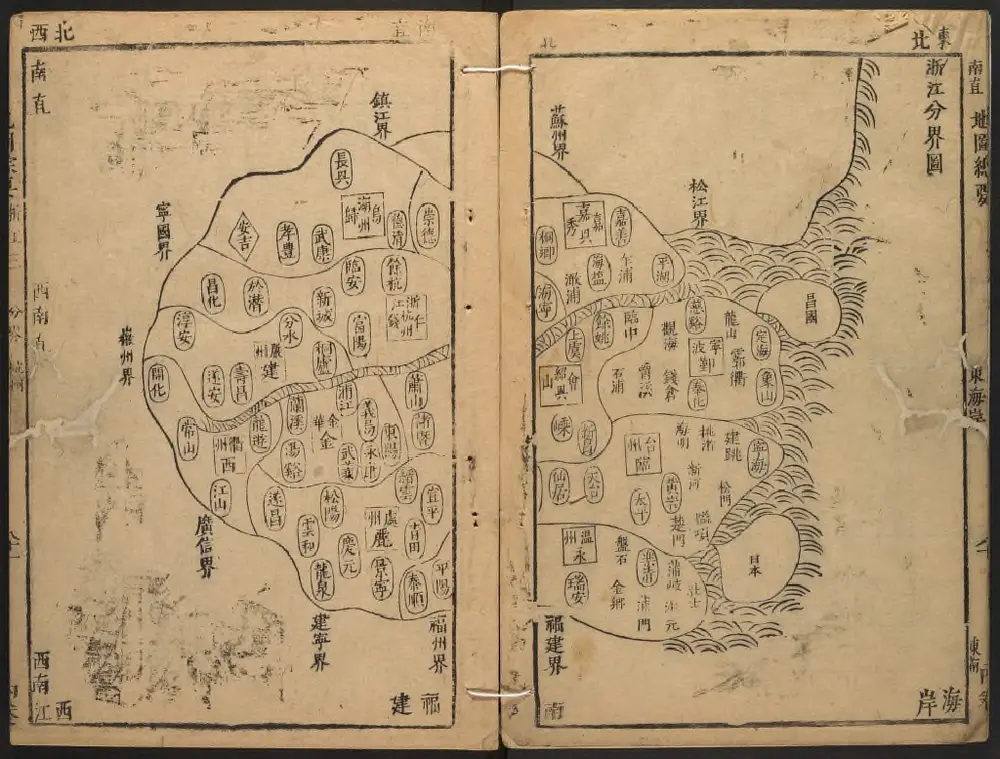 浙江分界圖
地圖綜要
東北
北
南直
東海岸
東南
海岸
南
蘇州界
松江界
嘉興
嘉
秀
嘉善
桐鄉
海鹽
乍浦
平湖
澉浦
海寧
昌國
慈谿
龍山
定海
觀海
臨山
餘姚
上虞
寧波
鄞
霩衢
象山
奉化
錢倉
石浦
紹興
會
山
嵊
新昌
台州
臨
海
桃渚
建跳
寧海
仙居
天台
黃岩
新河
松門
太平
楚門
隘頑
溫州
永
盤石
樂清
蒲岐
瑞安
金鄉
蒲門
壯士
日本
福建界
北
西
南直
西南
西南
江西
福建
鎮江界
寧國界
徽州界
廣信界
建寧界
福州界
長興
湖州
烏
歸
德清
崇德
安吉
孝豐
武康
臨安
餘杭
昌化
於潛
新城
浙江
杭州
仁
錢
淳安
分水
富陽
嚴州
建
桐廬
開化
遂安
壽昌
浦江
蕭山
蘭溪
金華
金
義烏
諸暨
常山
衢州
西
龍游
湯谿
武義
永康
東陽
縉雲
江山
遂昌
松陽
處州
麗
宣平
雲和
慶元
青田
龍泉
景寧
泰順
平陽